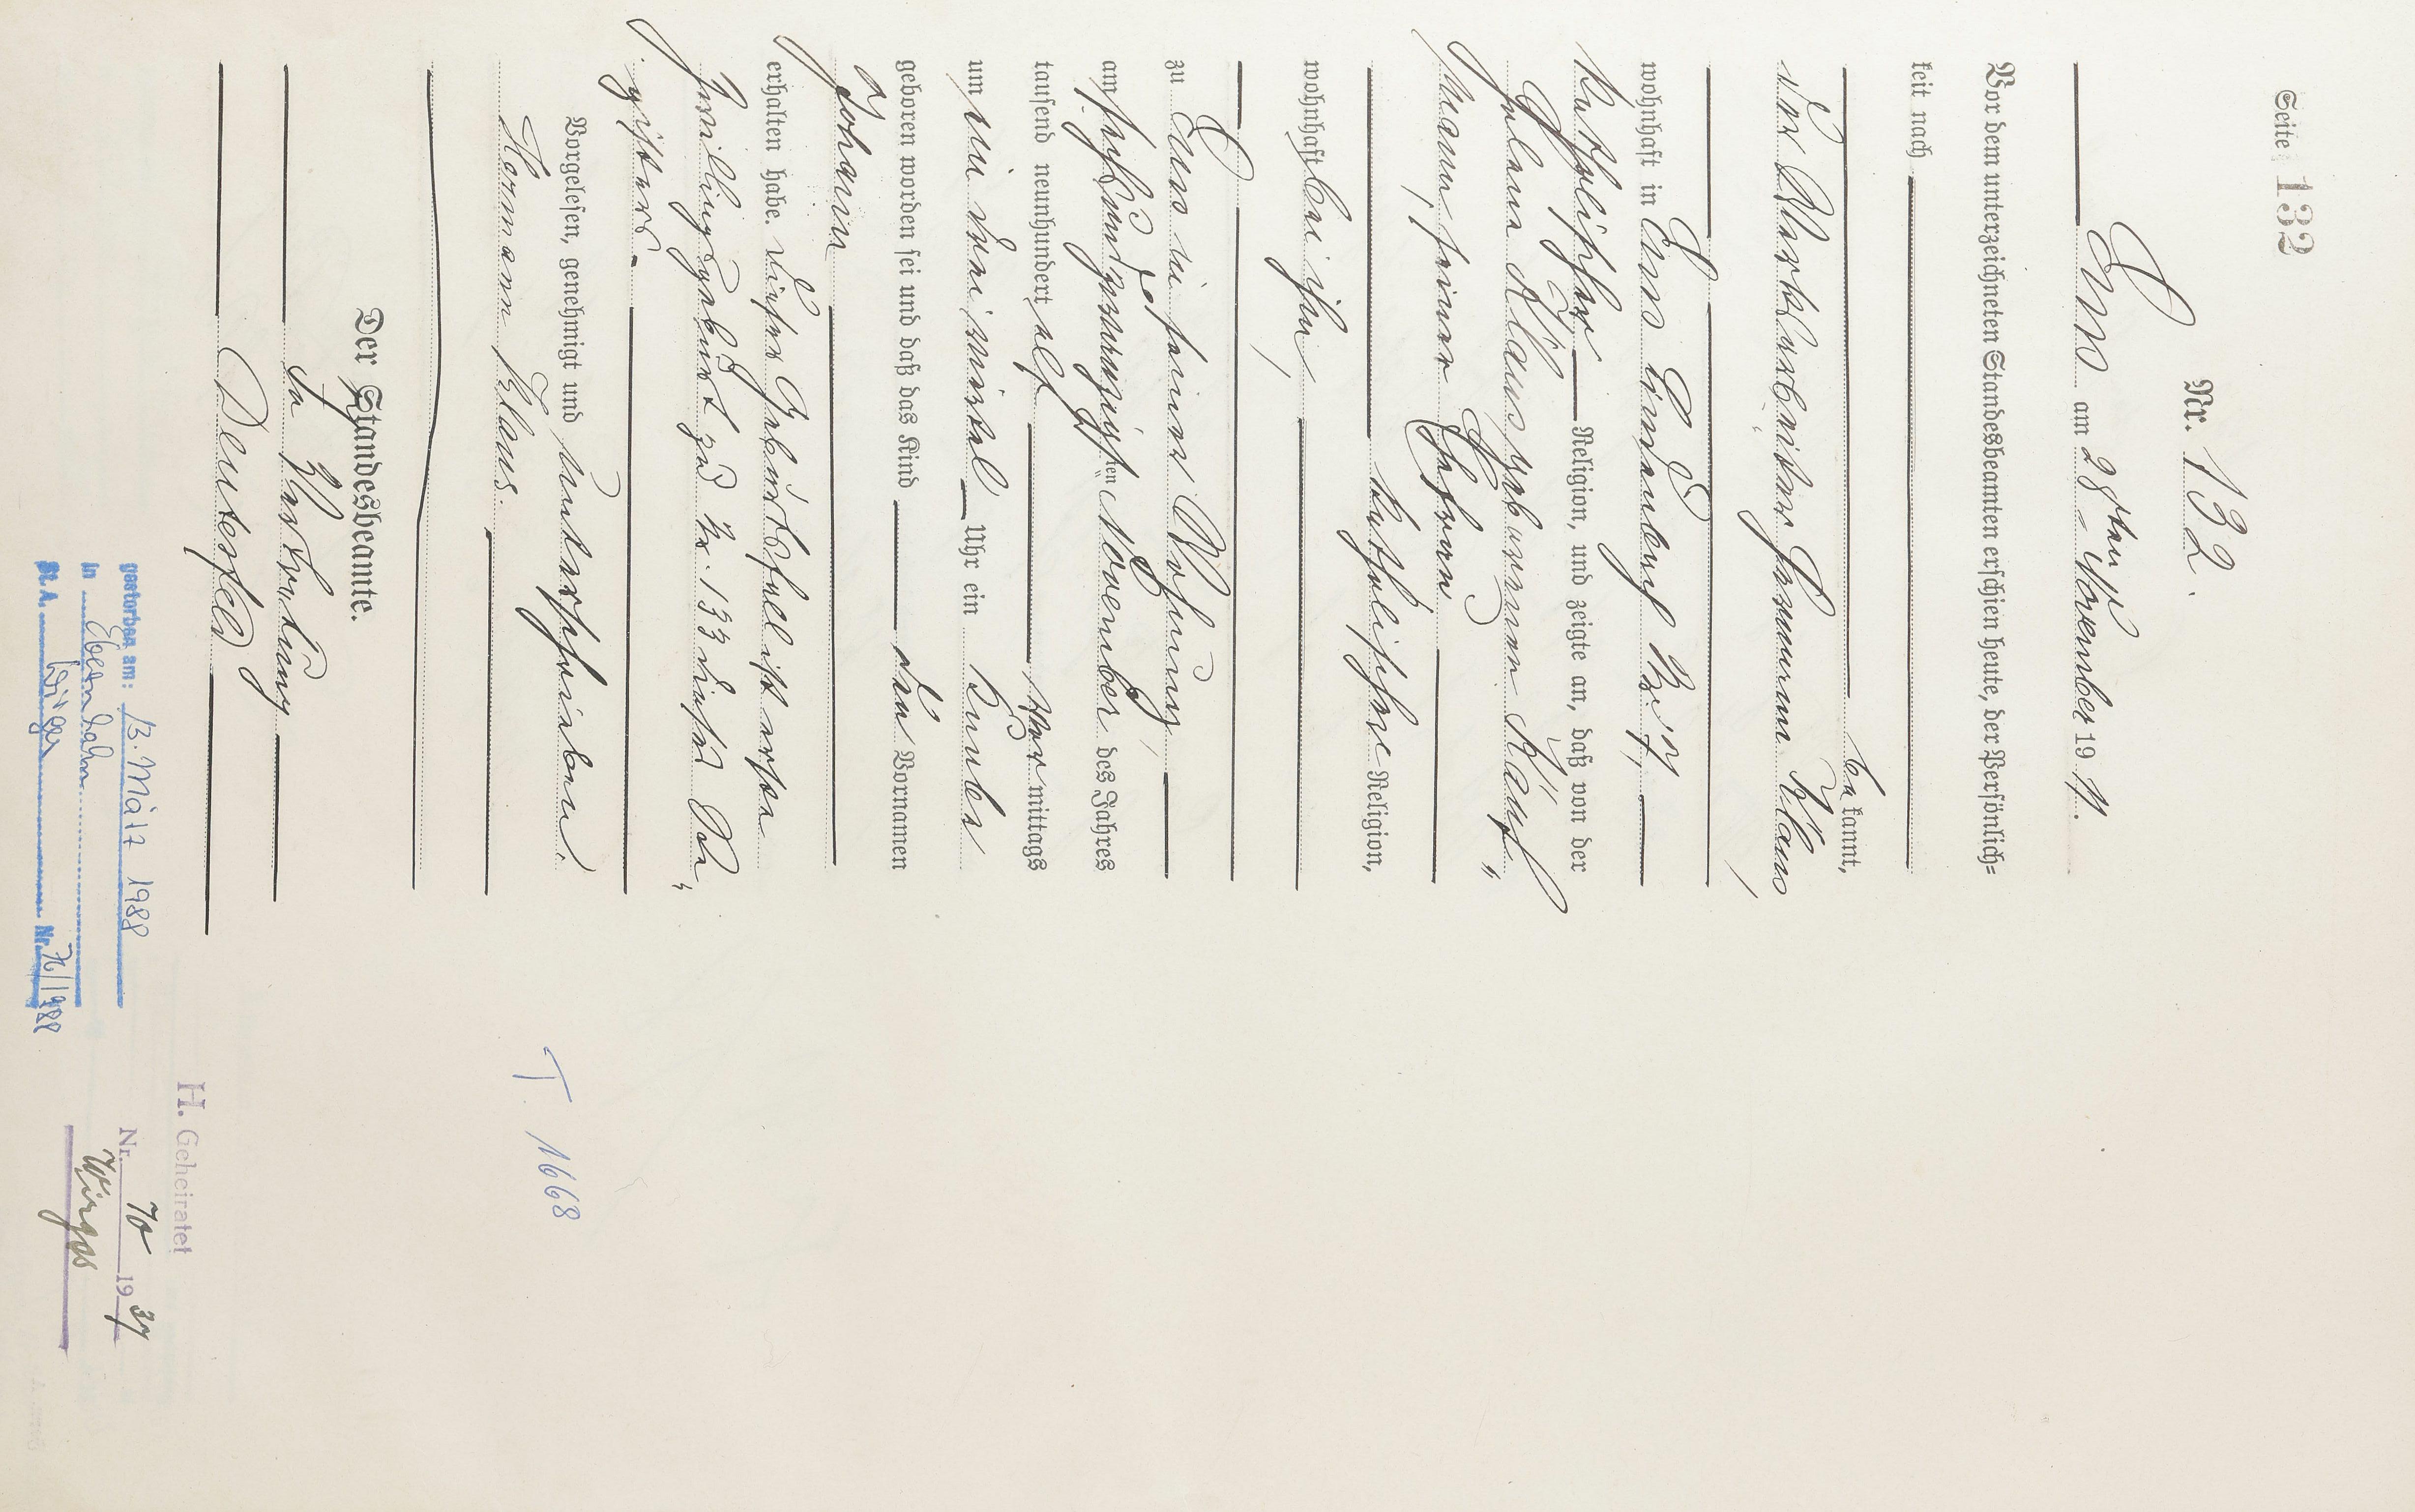 Seite 132
Nr. 132.
Ems am 28ten November 1911.
Vor dem unterzeichneten Standesbeamten erschien heute, der Persönlich=
keit nach
bekannt,
der Werkarbeiter Hermann Klaus,
wohnhaft in Ems
katholischer Religion, und zeigte an, daß von der
Helena Klaus geborenen Kauf„
mann, seiner Ehefrau
katholischer Religion,
wohnhaft bei ihm,
zu Ems in seiner Wohnung,
am sechsundzwanzigsten November des Jahres
tausend neunhundert elf Vormittags
um ein drei viertel Uhr ein Knabe
geboren worden sei und daß das Kind den Vornamen
Johann
erhalten habe. Dieser Geburtsfall ist erste
Zwillingsgeburt zu Nr. 133 dieses Re„
gisters.
Vorgelesen, genehmigt und unterschrieben.
Hermann Klaus.
Der Standesbeamte.
In Vertretung
Deutesfeld
T 1668
gestorben am: 13. März 1988
in Ebernhahn
St. A. Wirges Nr. 76/1988
H. Geheiratet
Nr. 70 1937
Wirges